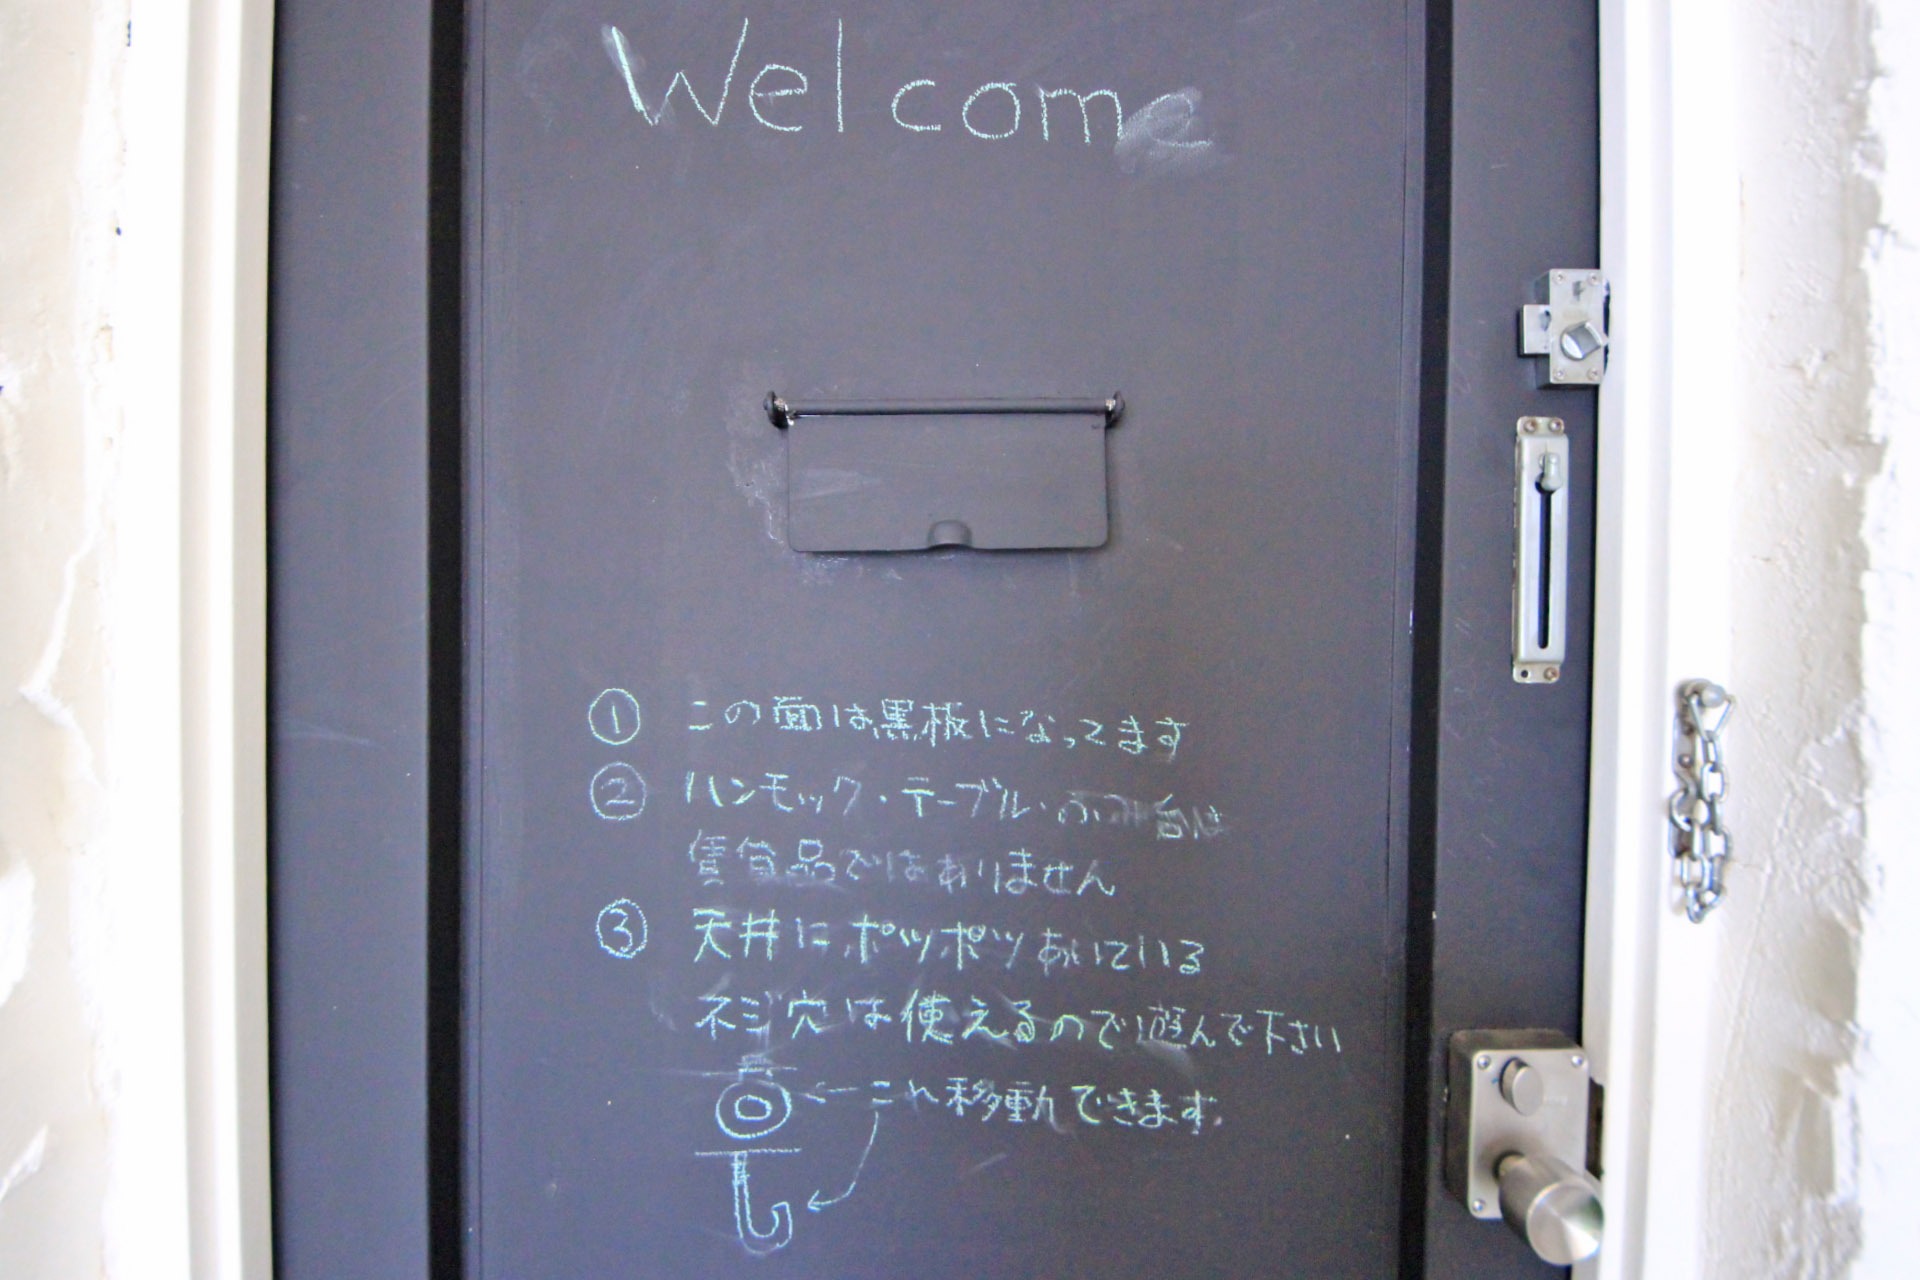 Welcome
① この面は黒板になってます
② ハンモック・テーブル・ふみ台は
賃貸品ではありません
③ 天井にポツポツあいている
ネジ穴は使えるので遊んで下さい
←これ移動できます。